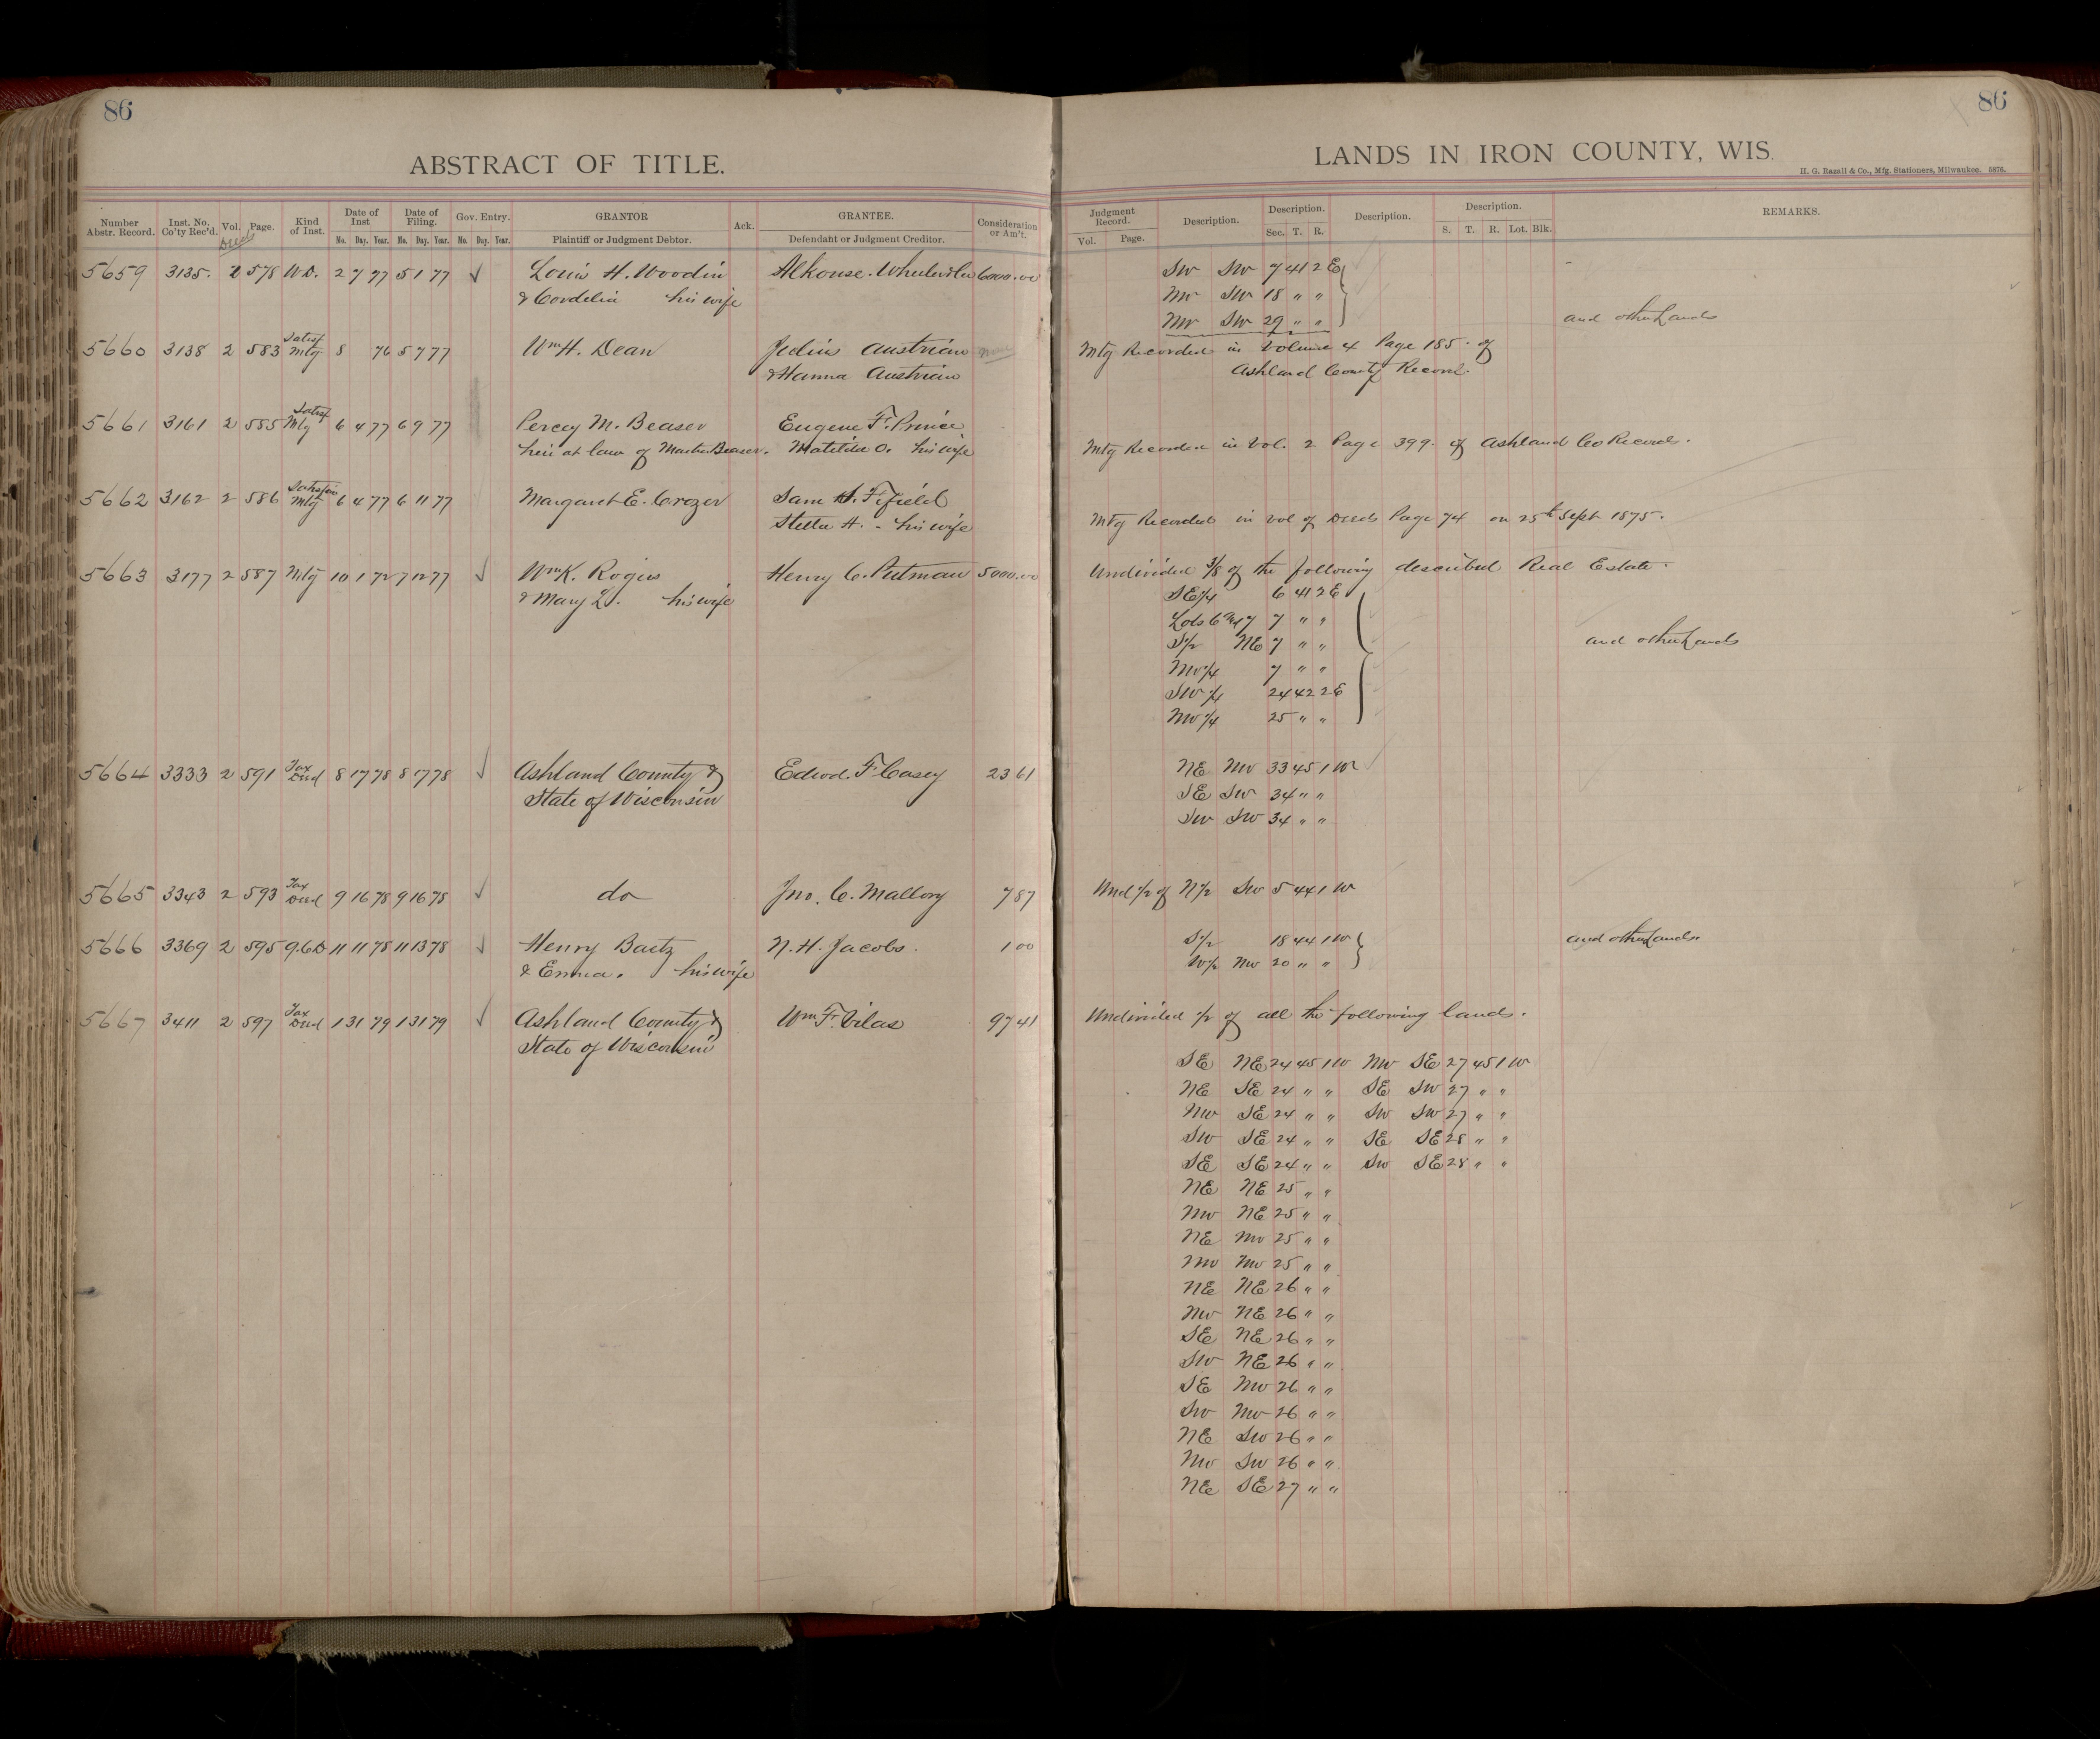 86
ABSTRACT OF TITLE.
Number Abstr. Record. Inst. No. Co'ty Rec'd. Vol. Page. Kind of Inst. Date of Inst Date of Filing. Gov. Entry. GRANTOR Ack. GRANTEE. Consideration or Am't.
Deeds No. Day. Year. No. Day. Year. No. Day. Year. Plaintiff or Judgment Debtor. Defendant or Judgment Creditor.
5659 3135. 2 578 W.D. 2 7 77 5 1 77 ✓ Louis H. Woodin 6000.00
& Cordelia his wife
5660 3138 2 583 Satisf Mtg 5 76 5 7 77 Wm H. Dean Julius Austrian
& Hanna Austrian
5661 3161 2 585 Satisf Mtg 6 4 77 6 9 77 Percy M. Beaser Eugene F. Prince
heir at law of Martin Beaser. Matilda O. his wife
5662 3162 2 586 Mtg 6 4 77 6 11 77 Margaret E. Crozer Sam S. Fifield
Stella H. - his wife
5663 3177 2 587 Mtg 10 1 72 7 12 77 ✓ Wm K. Rogers Henry C. Putman 5000.00
& Mary L. his wife
5664 3333 2 591 Tax Deed 8 17 78 8 17 78 ✓ Ashland County & Edwd. F. Casey 23 61
State of Wisconsin
5665 3343 2 593 Tax Deed 9 16 78 9 16 78 ✓ do Jno. C. Mallory 7 87
5666 3369 2 595 Q.C.D 11 11 78 11 13 78 ✓ Henry Baetz N. H. Jacobs. 1 00
& Emma. his wife
5667 3411 2 597 Tax Deed 1 31 79 1 31 79 ✓ Ashland County & Wm F. Vilas 97 41
State of Wisconsin
86
LANDS IN IRON COUNTY, WIS.
H. G. Razall & Co., Mfg. Stationers, Milwaukee. 5876.
Judgment Record. Description. Description. Description. Description. REMARKS.
Vol. Page. Sec. T. R. S. T. R. Lot. Blk.
SW SW 7 41 2 E
NW SW 18 " "
NW SW 29 " " and other Lands
Mtg Recorded in Volume 4 Page 185. of
Ashland County Record.
Mtg Recorded in Vol. 2 Page 399. of Ashland Co Record.
Mtg Recorded in Vol of Deeds Page 74 on 25th Sept 1875.
Undivided 3/8 of the following described Real Estate.
SE 1/4 6 41 2 E
Lots 6 and 7 7 " "
S 1/2 NE 7 " " and other Lands
NW 1/4 7 " "
SW 1/4 24 42 2 E
NW 1/4 25 " "
NE NW 33 45 1 W
SE SW 34 " "
SW SW 34 " "
Und 1/2 of N 1/2 SW 5 44 1 W
S 1/2 18 44 1 W and other Lands
W 1/2 NW 20 " "
Undivided 1/2 of all the following lands.
SE NE 24 45 1 W NW SE 27 45 1 W
NE SE 24 " " SE SW 27 " "
NW SE 24 " " SW SW 27 " "
SW SE 24 " " SE SE 28 " "
SE SE 24 " " SW SE 28 " "
NE NE 25 " "
NW NE 25 " "
NE NW 25 " "
NW NW 25 " "
NE NE 26 " "
NW NE 26 " "
SE NE 26 " "
SW NE 26 " "
SE NW 26 " "
SW NW 26 " "
NE SW 26 " "
NW SW 26 " "
NE SE 27 " "